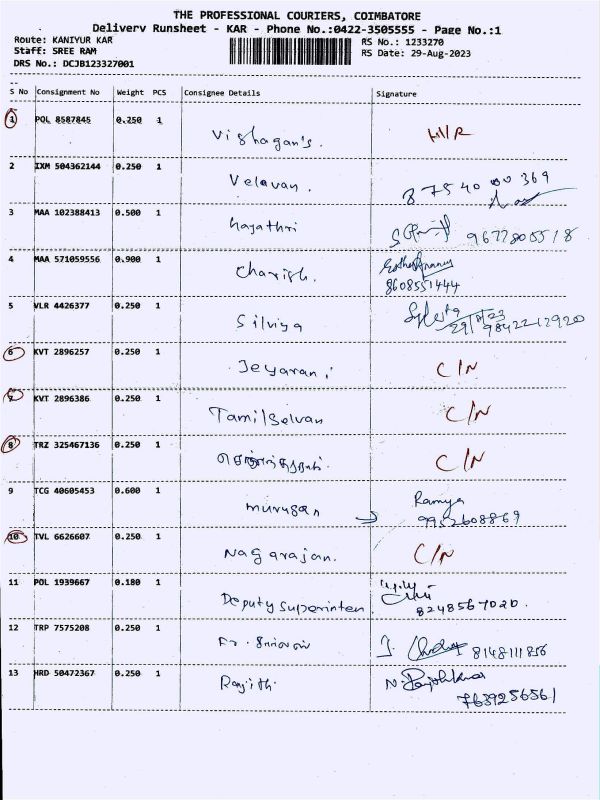 THE PROFESSIONAL COURIERS, COIMBATORE
Delivery Runsheet - KAR - Phone No.:0422-3505555 - Page No.:1
Route: KANIYUR KAR RS No.: 1233270
Staff: SREE RAM RS Date: 29-Aug-2023
DRS No.: DCJB123327001
S No Consignment No Weight PCS Consignee Details Signature
1 POL 8587845 0.250 1 Vishagan's.
2 IXM 504362144 0.250 1 Velavan. 87540 00369
3 MAA 102388413 0.500 1 Gayathri 9677805518
4 MAA 571059556 0.900 1 Charish.
8608551444
5 VLR 4426377 0.250 1 Silviya 29/8/23
9842212920
6 KVT 2896257 0.250 1 Jeyarani C/N
7 KVT 2896386 0.250 1 Tamilselvan C/N
8 TRZ 325467136 0.250 1 C/N
9 TCG 40605453 0.600 1 murugan Ramya
9952608869
10 TVL 6626607 0.250 1 Nagarajan. C/N
11 POL 1939667 0.180 1 Deputy superinten.
8248567020.
12 TRP 7575208 0.250 1 Fr. 8148111856
13 HRD 50472367 0.250 1 Ranjith.
7639256561